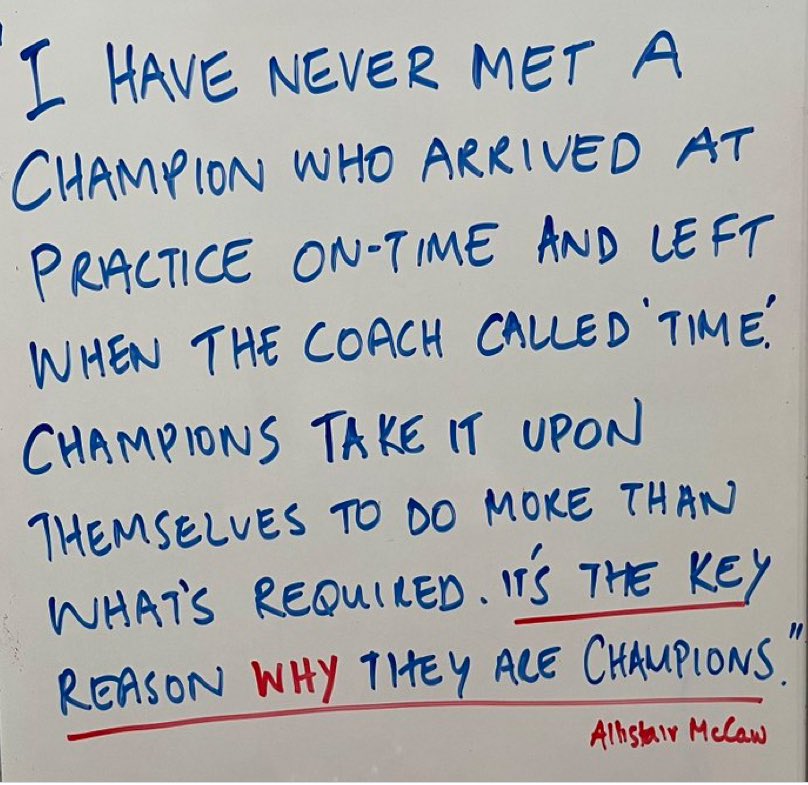 "I HAVE NEVER MET A
CHAMPION WHO ARRIVED AT
PRACTICE ON-TIME AND LEFT
WHEN THE COACH CALLED 'TIME'.
CHAMPIONS TAKE IT UPON
THEMSELVES TO DO MORE THAN
WHAT'S REQUIRED. IT'S THE KEY
REASON WHY THEY ARE CHAMPIONS."
Allistair McCaw